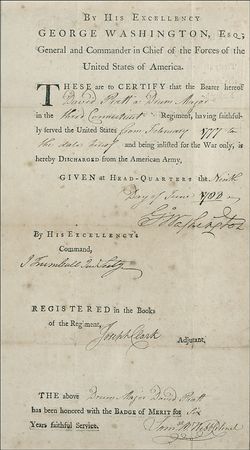 By His EXCELLENCY
GEORGE WASHINGTON, Esq;
General and Commander in Chief of the Forces of the
United States of America.
THESE are to CERTIFY that the Bearer hereof
David Pratt a Drum Major
in the third Connecticut Regiment, having faithful-
ly served the United States from February 1777 to
the date hereof and being inlisted for the War only, is
hereby DISCHARGED from the American Army,
GIVEN at HEAD-QUARTERS the Ninth
Day of June
G Washington
By HIS EXCELLENCY's
Command,
J Trumbull
REGISTERED in the Books
of the Regiment,
Joseph Clark Adjutant,
THE above Drum Major David Pratt
has been honored with the BADGE of MERIT for Six
Years faithful Service.